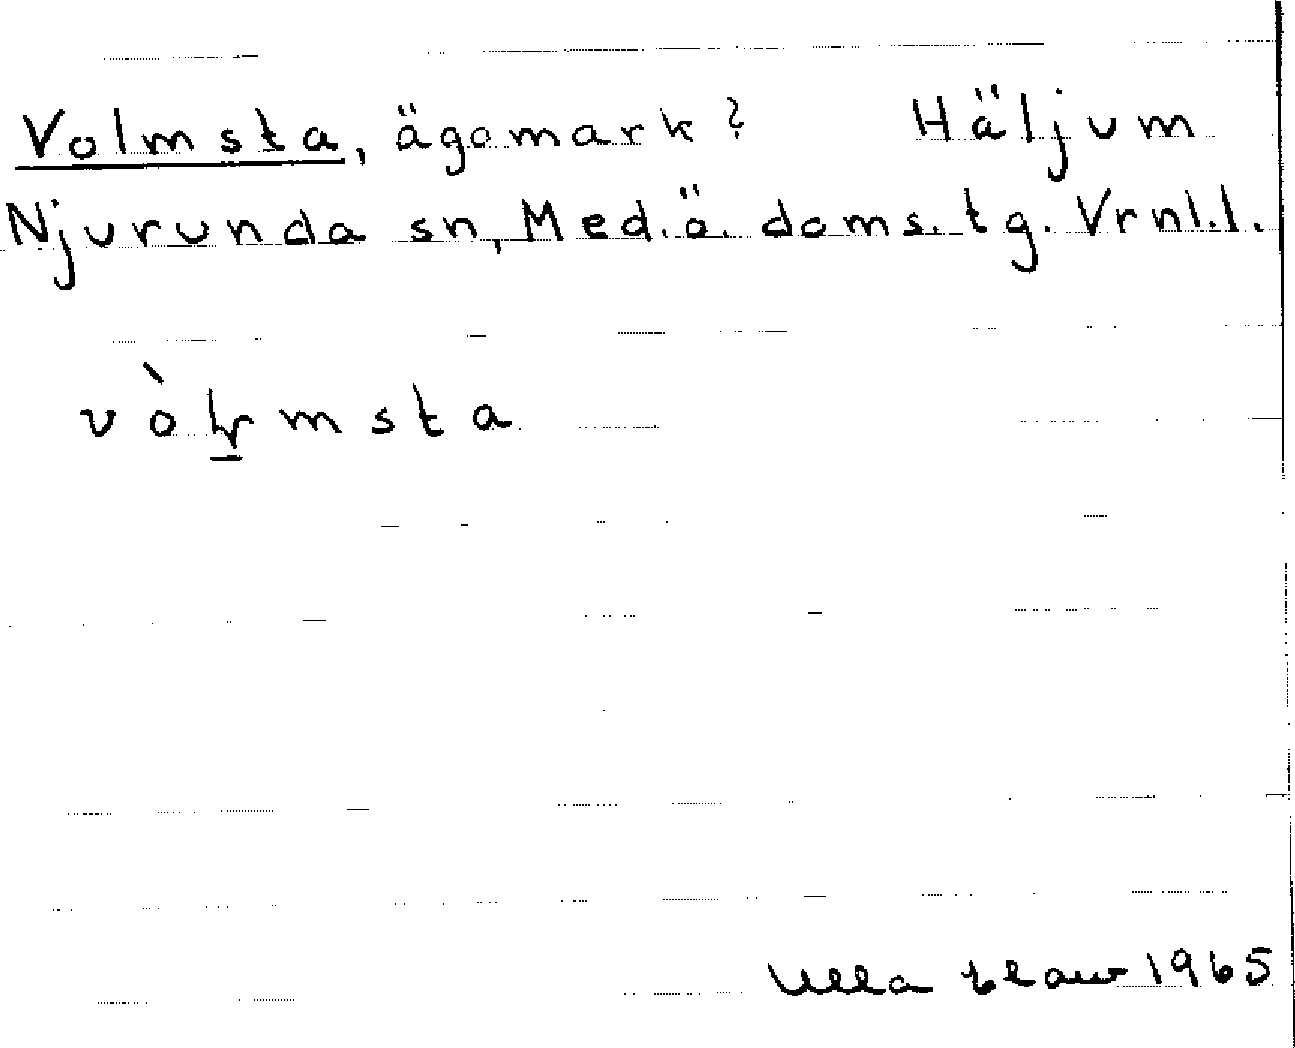 Volmsta, ägomark? Häljum
Njurunda sn, Med.ö. doms.tg. Vrnl.l.
vòlmsta
Ulla 1965